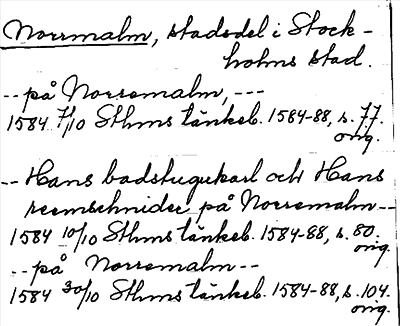 Norrmalm, stadsdel i Stock-
holms stad.
-- på Norremalm, ---
1584 7/10 Sthms tänkeb. 1584-88, s. 77.
orig.
-- Hans badstugukarl och Hans
reemschnider på Norremalm --
1584 10/10 Sthms tänkeb. 1584-88, s. 80.
orig.
-- på Norremalm --
1584 30/10 Sthms tänkeb. 1584-88, s. 104.
orig.